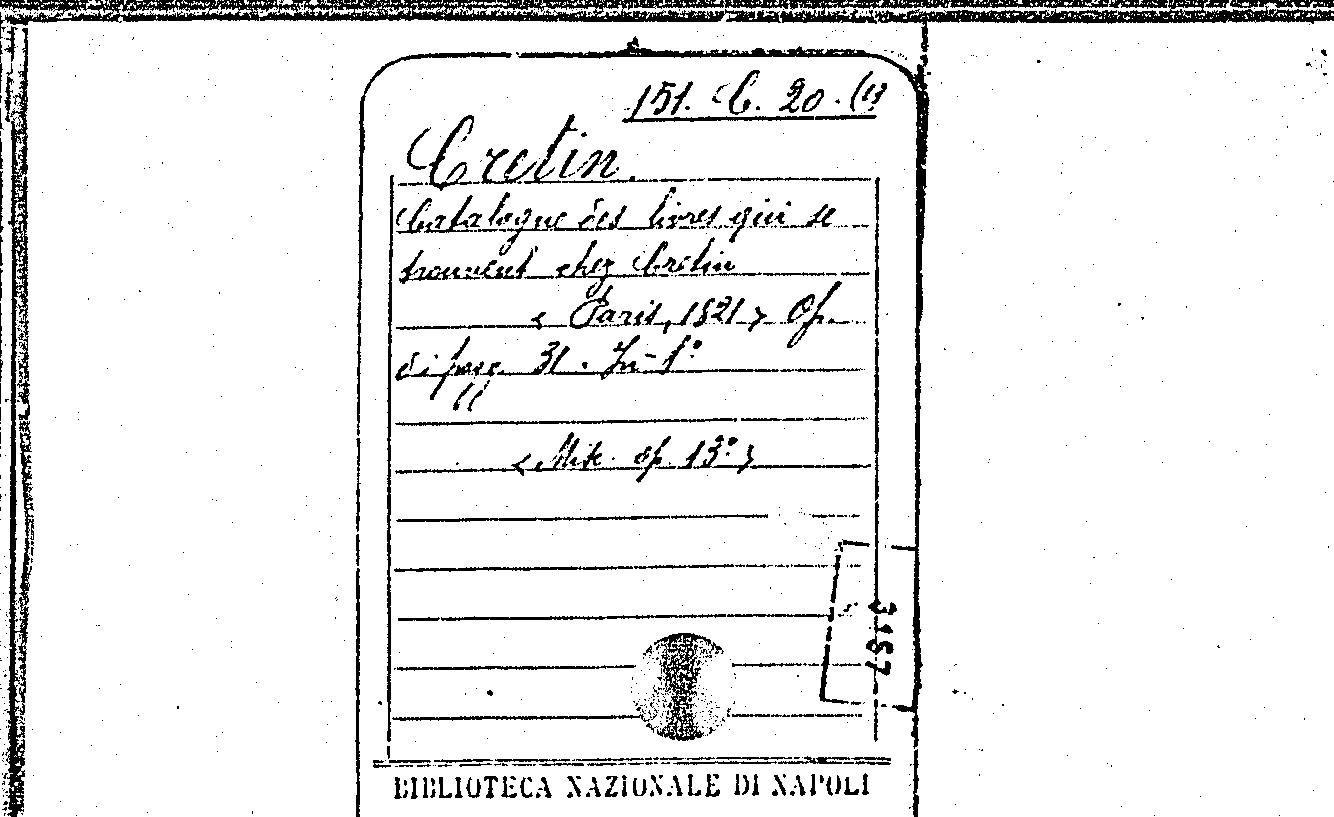 151. C. 20. (1)
Cretin.
Catalogue des livres qui se
trouvent chez Cretin
< Paris, 1821 > Op.
di pagg. 31. In-8°
< Mk. op. 13.° >
3187
BIBLIOTECA NAZIONALE DI NAPOLI